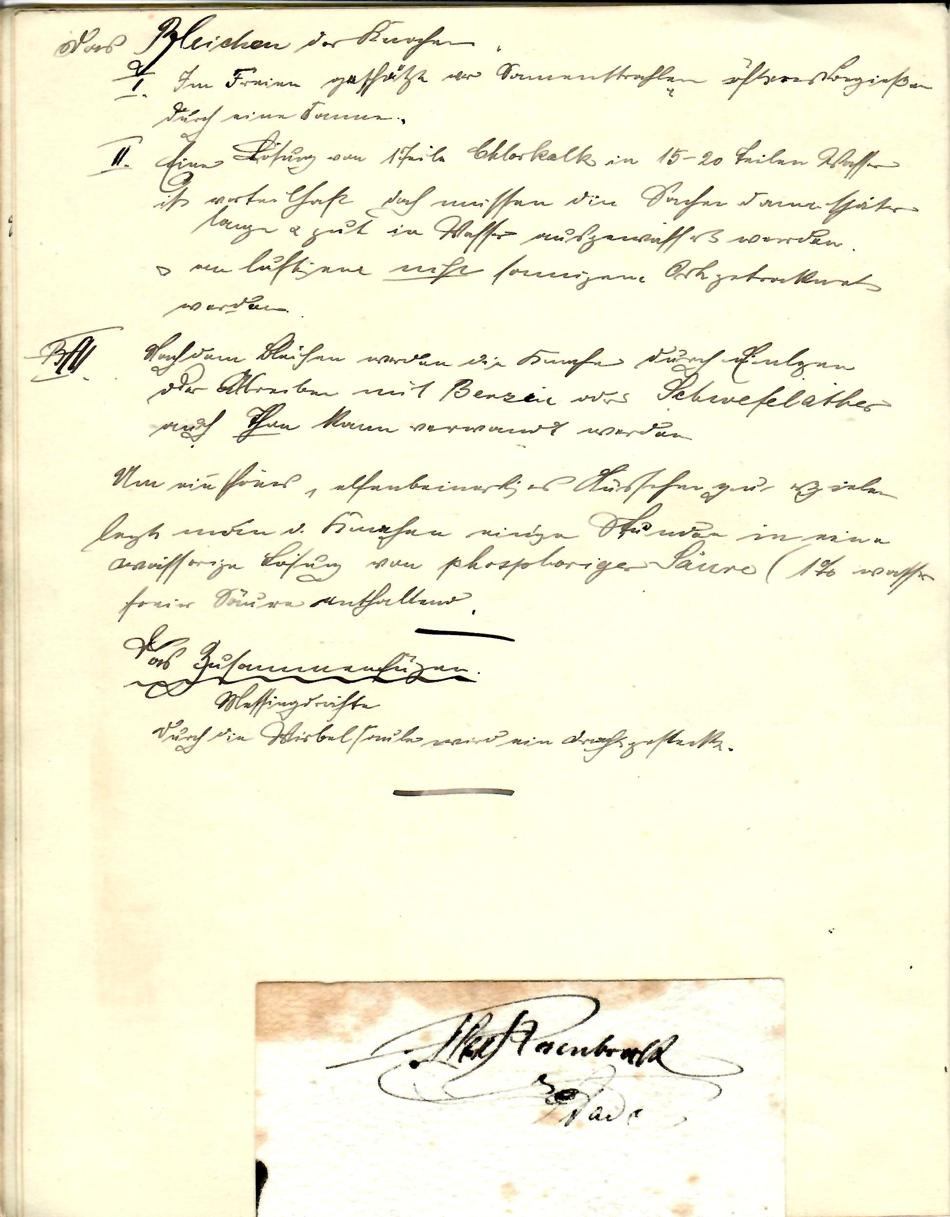 Das Bleichen der Knochen.
I. Im Freien geschützt vor Sonnenstrahlen öfteres Begießen
durch eine Kanne.
II. Eine Lösung von 1 Teile Chlorkalk in 15-20 Teilen Wasser
ist vorteilhaft doch müssen die Sachen dann später
lange & gut in Wasser ausgewässert werden.
an luftigem nicht sonnigem Ort getrocknet
werden.
III. Nach dem Bleichen werden die Knochen durch
oder Abreiben mit Benzin oder Schwefeläther
auch Thon kann verwandt werden
Um ein schönes, elfenbeinartiges Aussehen zu erzielen
legt man d. Knochen einige Stunden in eine
wässerige Lösung von phosphoriger Säure (1% wasser
freier Säure enthaltend.
Das Zusammenfügen.
Messingdrähte
durch die Wirbelsäule wird ein Draht gesteckt.
Rosenbrock
Stade